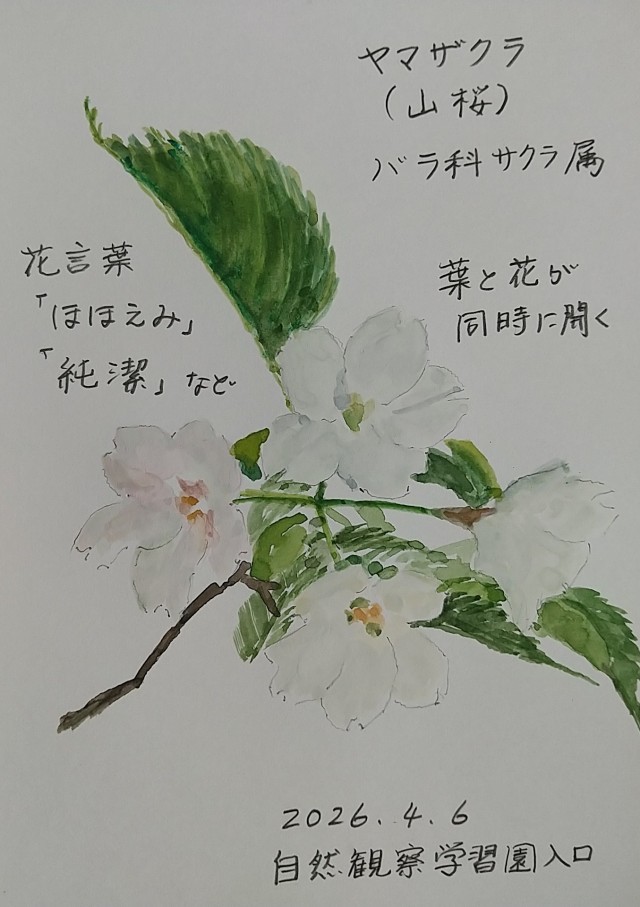 ヤマザクラ
（山桜）
バラ科サクラ属
花言葉
「ほほえみ」
「純潔」など
葉と花が
同時に開く
2026.4.6
自然観察学習園入口